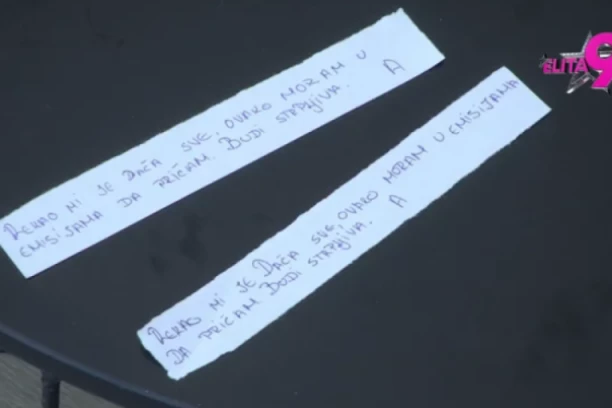 REKAO MI JE DAČA SVE, OVAKO MORAM U
EMISIJAMA DA PRIČAM. BUDI STRPLJIVA. A
REKAO MI JE DAČA SVE, OVAKO MORAM U EMISIJAMA
DA PRIČAM. BUDI STRPLJIVA. A
ELITA 9